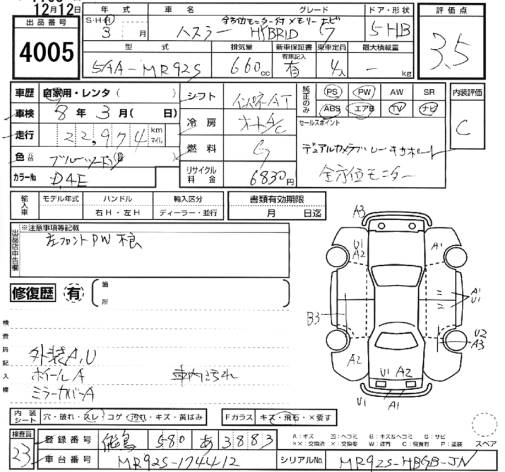 12月12日
出品番号
4005
年式 車名 グレード ドア・形状 評価点
S・H・R 全方位モニター付メモリーナビ
3 月 ハスラー HYBRID G 5HB 3.5
型式 排気量 新車保証書 乗車定員 最大積載量
有無記入
5AA-MR92S 660cc 有 4人 - kg
車歴 自家用・レンタ( )
車検 8年3月( 日)
走行 22,974 km マイル
色
カラーNo. D4E
シフト インパネAT
冷房 オートA/C
燃料 G
リサイクル料金 6830円
純正のみ PS PW AW SR
ABS エアB TV ナビ
セールスポイント
デュアルカメラブレーキサポート
全方位モニター
内装評価
C
輸入車 モデル年式 ハンドル 輸入区分 書類有効期限
年 右H・左H ディーラー・並行 月 日迄
出品店申告欄
※注意事項等記載
左フロントPW不良
修復歴 有 箇所
検査員記入欄
外装A,U
ホイールA 車内汚れ
ミラーカバーA
A3
U1
A2
A1
A1
U1
B3
U2
A3
A2
U1 A2
A1
U1 A1
内装シート 穴・破れ・スレ・コゲ・汚れ・キズ・黄ばみ Fガラス キズ・飛石・X要す
A:キズ U:ヘコミ B:キズ&ヘコミ S:サビ
スペア
検査員
23
登録番号 福島 580 あ 3883
車台番号 MR92S-174412 シリアルNo. MR92S-HBGB-JN